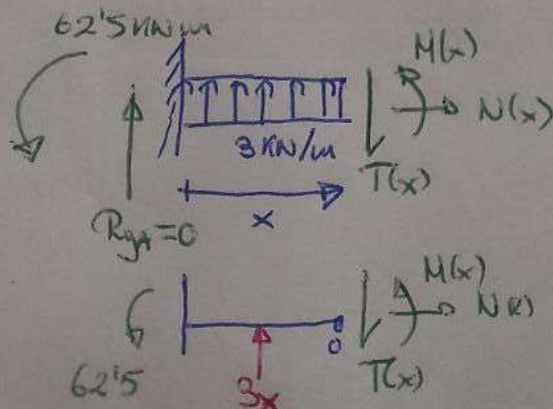 62'5 KN m
M(x)
N(x)
3 KN/m
T(x)
x
RyA = 0
M(x)
N(x)
62'5
3x
0
T(x)